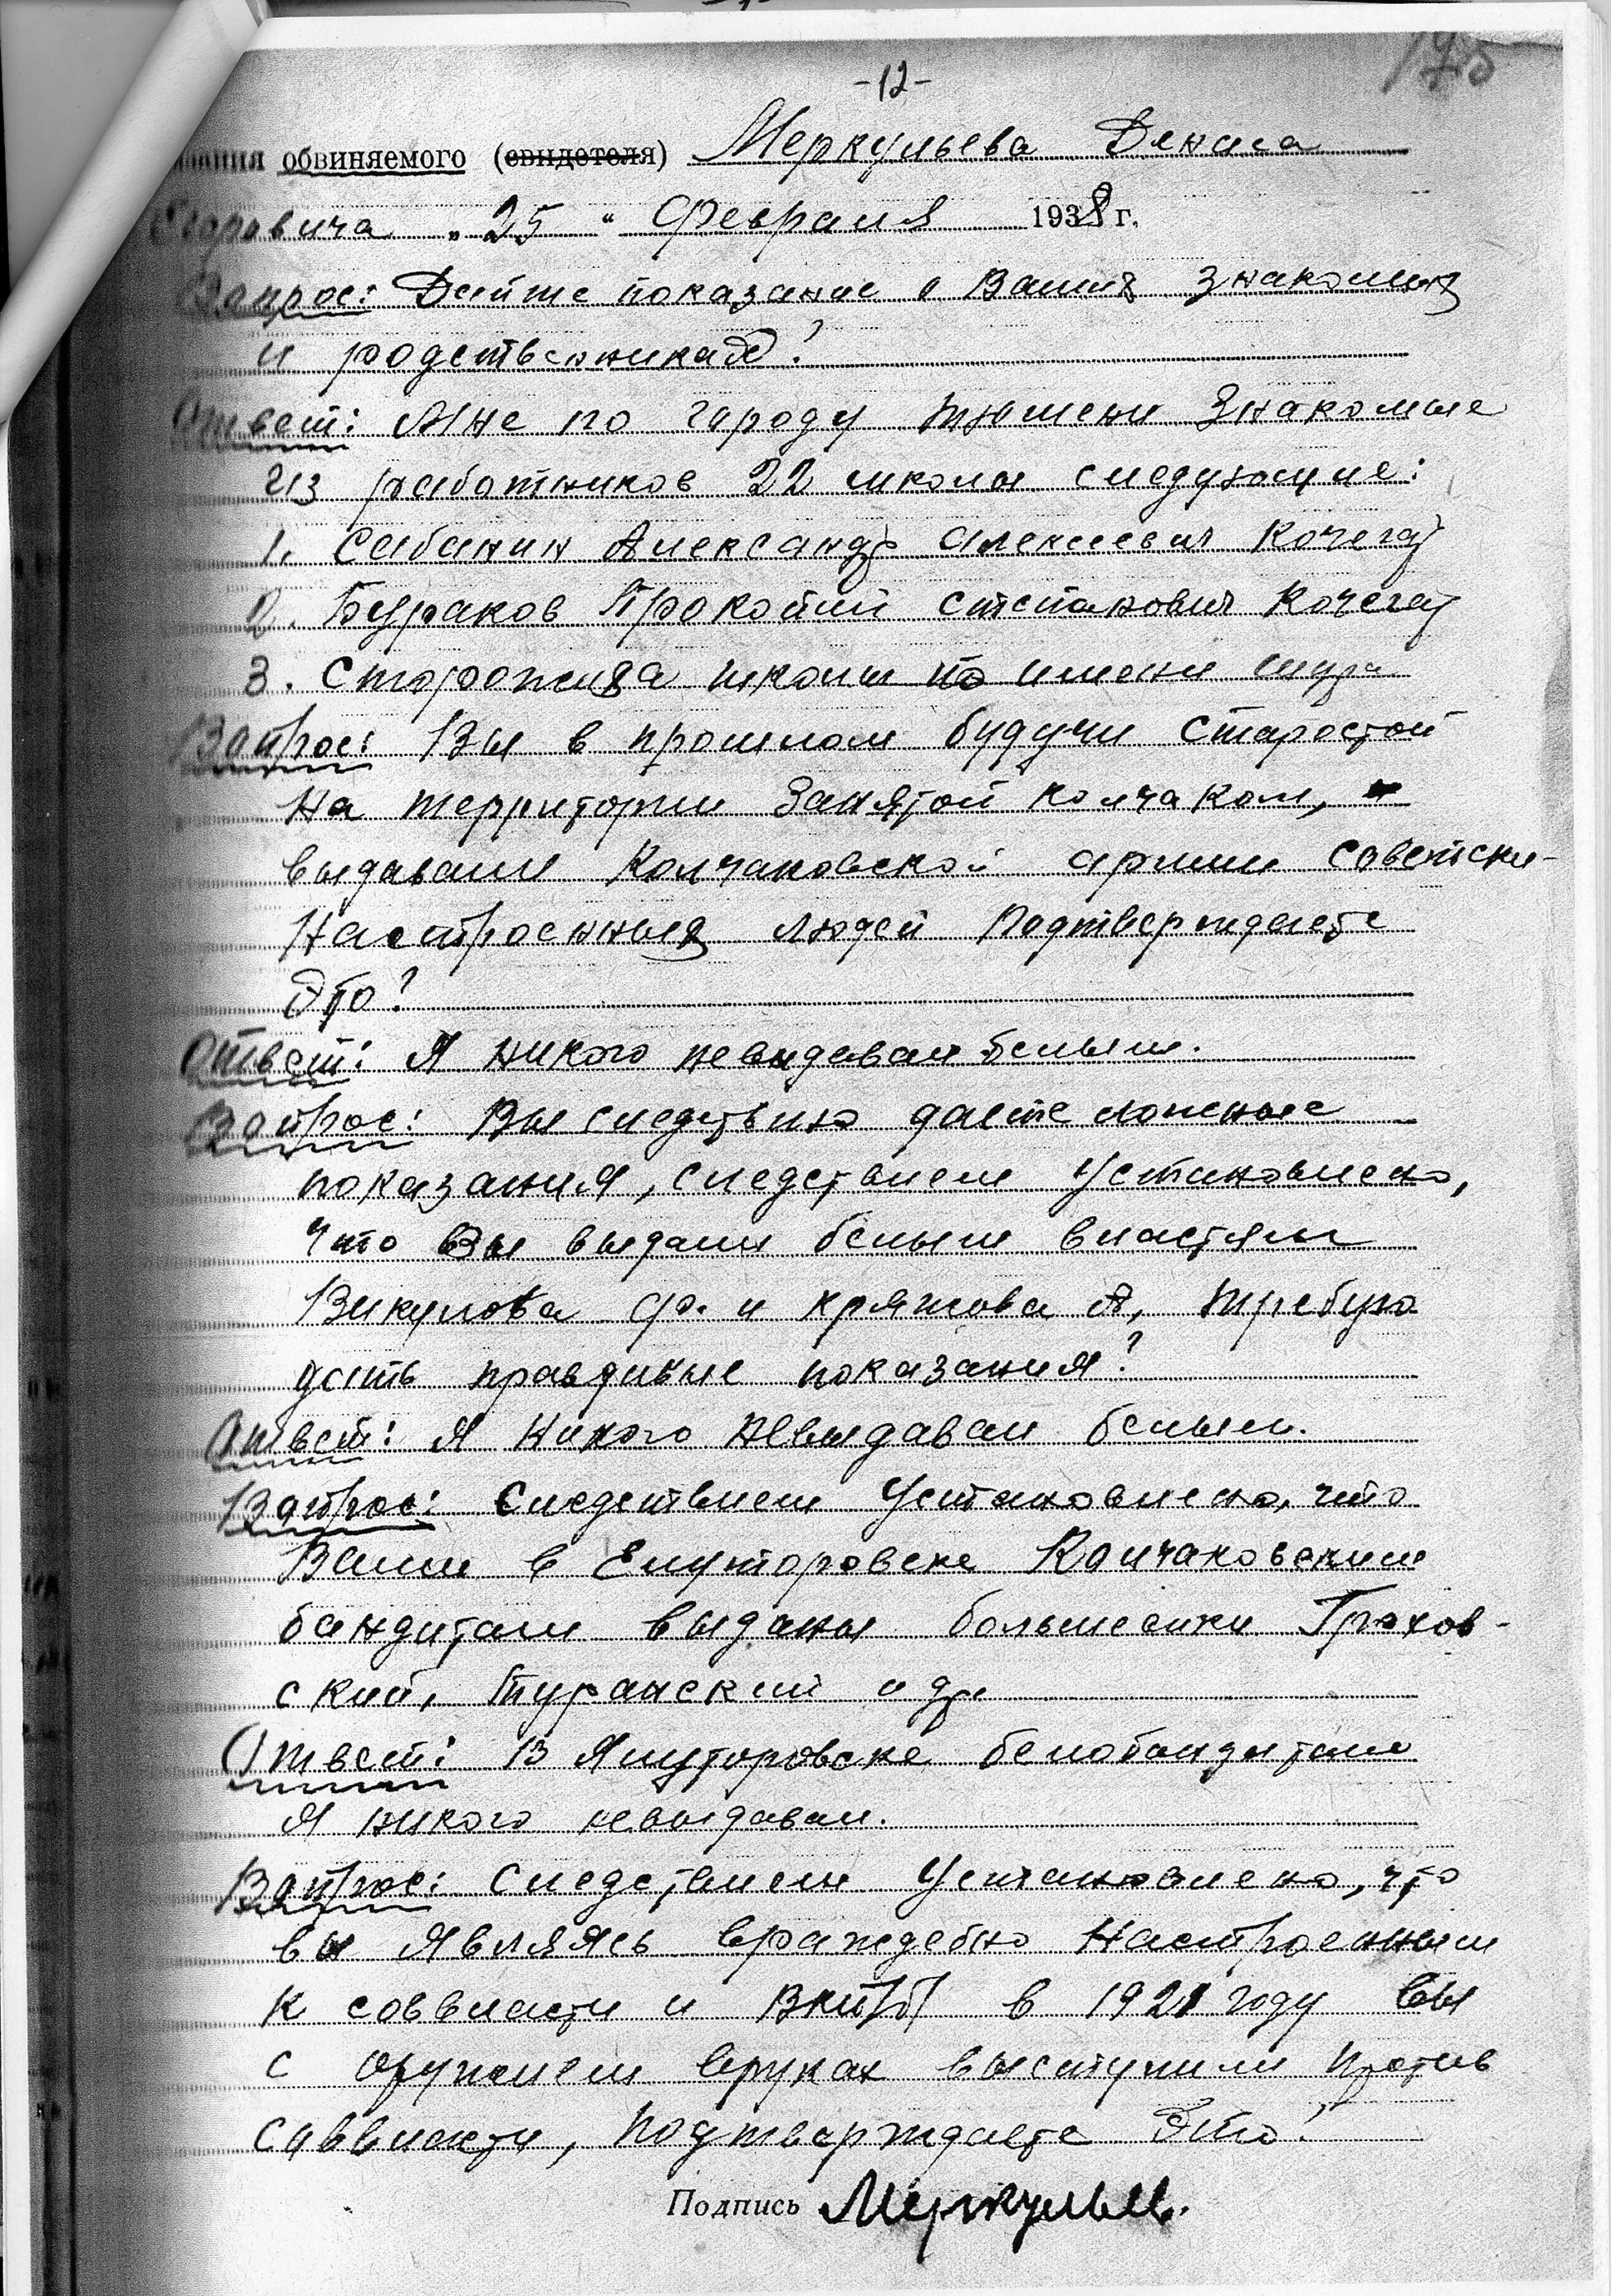 -12-
195
зания обвиняемого (свидетеля) Меркульева Дениса
Егоровича „25“ Февраля 1938 г.
Вопрос: Дайте показание о Ваших знакомых
и родственниках?
Ответ: Мне по городу Тюмени знакомые
из работников 22 школы следующие:
1. Сабанин Александр Алексеевич Кочегар
2. Бураков Прокопий степанович Кочегар
3. Сторожиха школы по имени Шура
Вопрос: Вы в прошлом будучи Старостой
на территории занятой колчаком,
выдавали Колчаковской армии советски-
настроенных людей Подтверждаете
это?
Ответ: Я никого невыдавал белым.
Вопрос: Вы следствию даете ложные
показания, следствием установлено,
что вы выдали белым властям
Викулова Ф. и Кряжова А, требую
дать правдивые показания?
Ответ: Я никого невыдавал белым.
Вопрос: Следствием установлено, что
Вами в Елуторовске Колчаковским
бандитам выданы большевики Грохов-
ский, Туранский и др.
Ответ: В Ялуторовске белобандитам
я никого невыдавал.
Вопрос: Следствием установлено, что
вы являясь враждебно настроенным
к соввласти и ВКП/б/ в 1921 году вы
с оружием вруках выступили против
соввласти, подтверждаете это?
Подпись Меркульев.